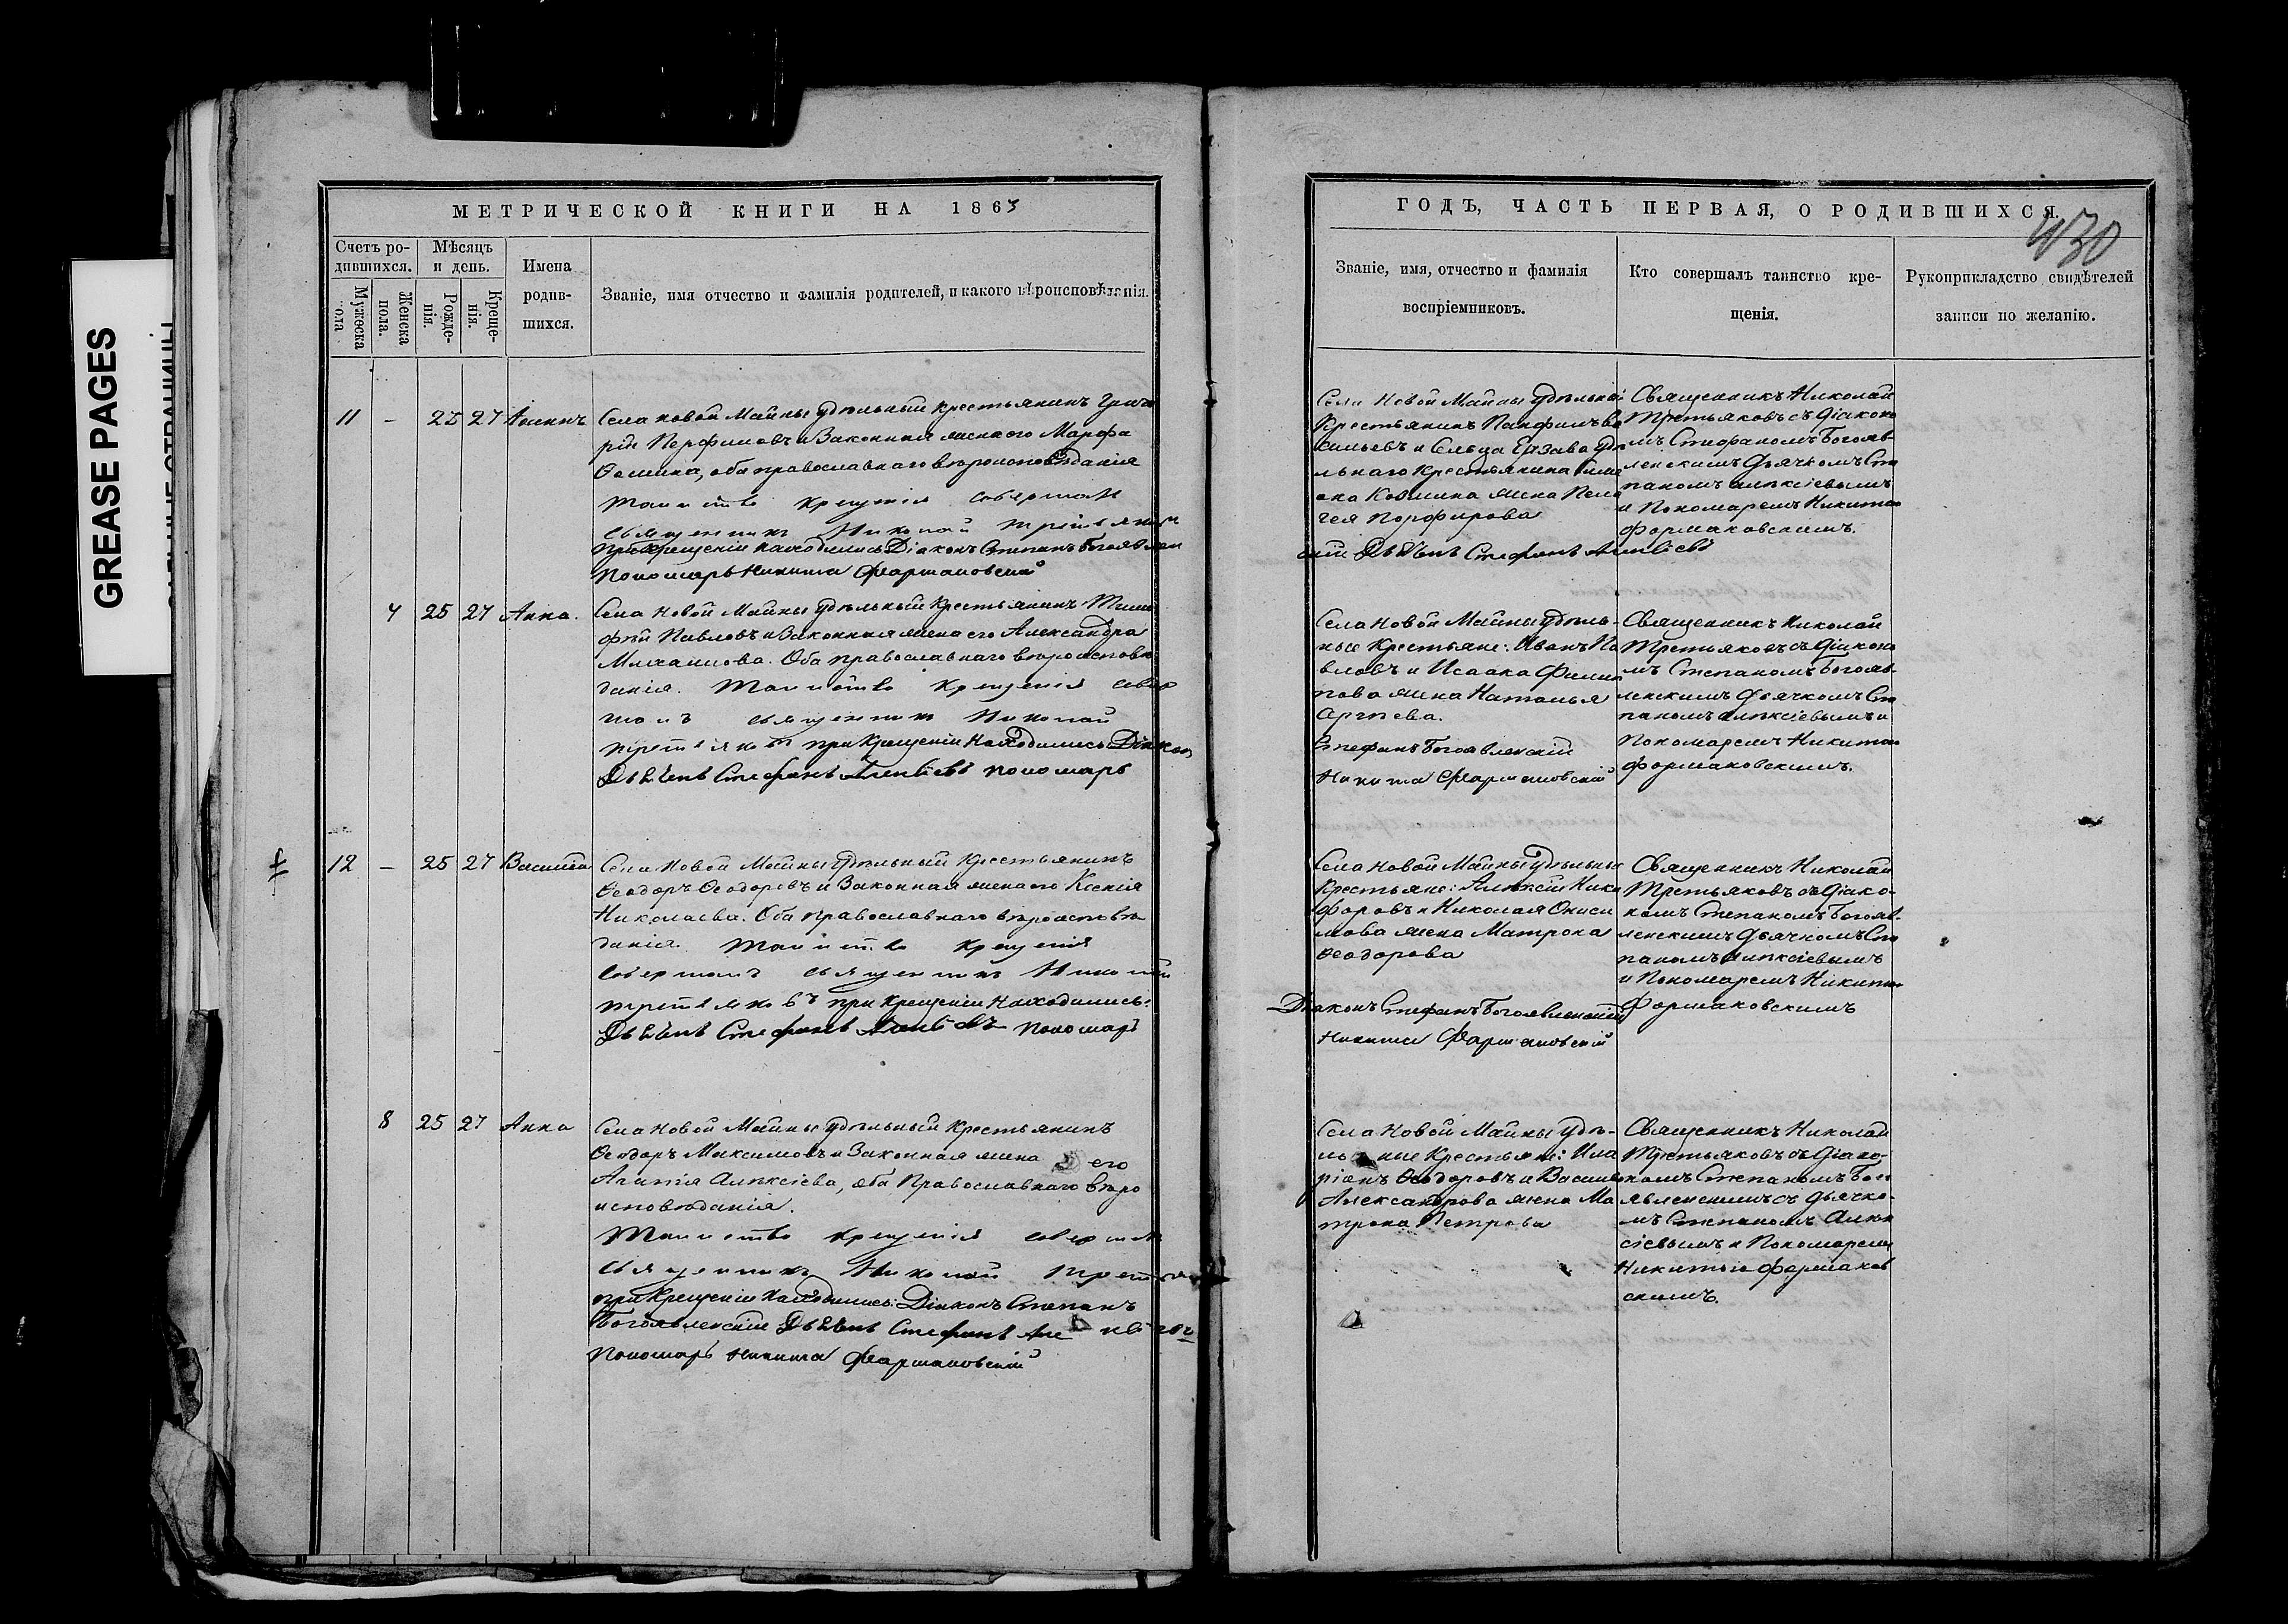 GREASE PAGES
МЕТРИЧЕСКОЙ КНИГИ НА 1863
Счетъ ро-
дившихся.
Мѣсяцъ
и день.
Имена
родив-
шихся.
Мужеска
пола
Женска
пола.
Рожде-
нія.
Креще-
нія.
Званіе, имя отчество и фамилія родителей, и какого вѣроисповѣданія.
11 – 25 27
Села Новой Майны удѣльный крестьянинъ Григо
рій Перфиловъ и Законная жена его Марфа
Ѳомина, оба православнаго вѣроисповѣданія
Таинство крещенія совершалъ
священникъ Николай Третьяковъ
при крещеніи находились Діаконъ Степанъ Богоявлен
Пономарь Никита Фармаковскій
4 25 27 Анна.
Села Новой Майны удѣльный Крестьянинъ Тимо
фей Павловъ и Законная жена его Александра
Михайлова. Оба православнаго вѣроисповѣ
данія. Таинство Крещенія совер
шалъ священникъ Николай
Третьяковъ при Крещеніи Находились Діаконъ
Дьячекъ Стефанъ Алексіевъ пономарь
12 – 25 27 Василій
Села Новой Майны удѣльный Крестьянинъ
Ѳеодоръ Ѳеодоровъ и Законная жена его Ксенія
Николаева. Оба православнаго вѣроисповѣ
данія. Таинство Крещенія
совершалъ священникъ Николай
Третьяковъ при Крещеніи Находились:
Дьячекъ Стефанъ Алексіевъ пономарь
8 25 27 Анна
Села Новой Майны удѣльный Крестьянинъ
Ѳеодоръ Максимовъ и Законная жена его
Агапія Алексіева, оба Православнаго вѣро
исповѣданія.
Таинство крещенія совершалъ
священникъ Николай Третьяковъ
при Крещеніи Находились: Діаконъ Степанъ
Богоявленскій Дьячекъ Стефанъ
Пономарь Никита Фармаковскій
ГОДЪ, ЧАСТЬ ПЕРВАЯ, О РОДИВШИХСЯ.
430
Званіе, имя, отчество и фамилія
воспріемниковъ.
Кто совершалъ таинство кре-
щенія.
Рукоприкладство свидѣтелей
записи по желанію.
Села Новой Майны удѣльный
Крестьянинъ Панфилъ Ва
сильевъ и Сельца Ерзова удѣ
льнаго Крестьянина
Козмина жена Пела
гея Порфирова
скій Дьячекъ Стефанъ Алексіевъ
Священникъ Николай
Третьяковъ съ Діаконо
мъ Стефаномъ Богояв-
ленскимъ Дьячкомъ Сте
паномъ Алексіевымъ
и Пономаремъ Никитою
Фармаковскимъ.
Села Новой Майны удѣль-
ные Крестьяне: Иванъ Па
вловъ и Исаака Филип
пова жена Наталья
Сергѣева.
Стефанъ Богоявленскій
Никита Фармаковскій
Священникъ Николай
Третьяковъ съ Діаконо
мъ Степаномъ Богояв-
ленскимъ Дьячкомъ Сте
паномъ Алексіевымъ и
Пономаремъ Никитою
Фармаковскимъ.
Села Новой Майны удѣльные
Крестьяне: Алексій Ники
форовъ и Николая Ониси
мова жена Матрона
Ѳеодорова
Діаконъ Стефанъ Богоявленскій
Никита Фармаковскій
Священникъ Николай
Третьяковъ съ Діако-
номъ Степаномъ Богояв-
ленскимъ Дьячкомъ Сте
паномъ Алексіевымъ
и Пономаремъ Никитою
Фармаковскимъ
Села Новой Майны удѣ-
льные Крестьяне: Ила
ріонъ Ѳеодоровъ и Василія
Александрова жена Ма
трона Петрова
Священникъ Николай
Третьяковъ съ Діако-
номъ Степаномъ Бого
явленскимъ съ Дьячко-
мъ Степаномъ Алек
сіевымъ и Пономаремъ
Никитою Фармаков
скимъ.